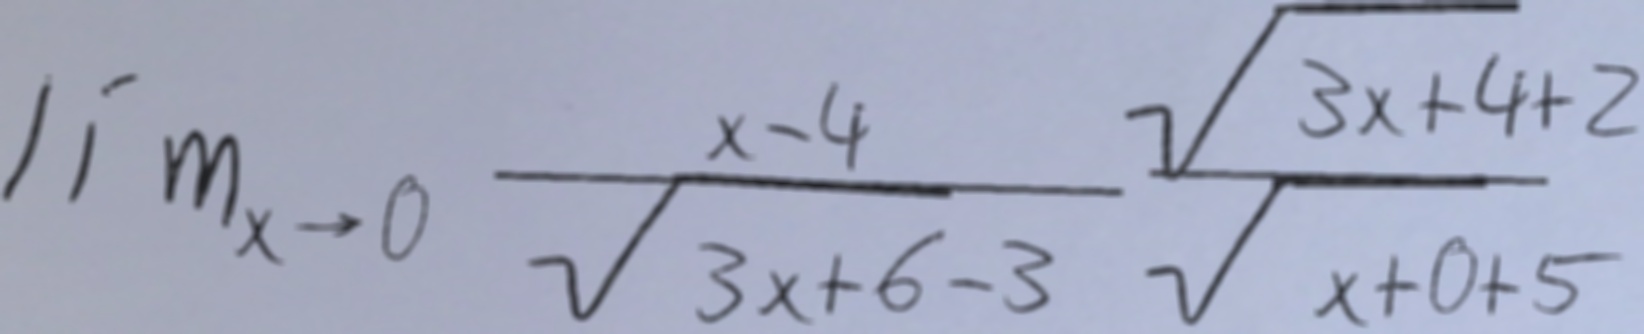 \lim_{x \to 0} \frac{x-4}{\sqrt{3x+6}-3} \frac{\sqrt{3x+4}+2}{\sqrt{x+0}+5}